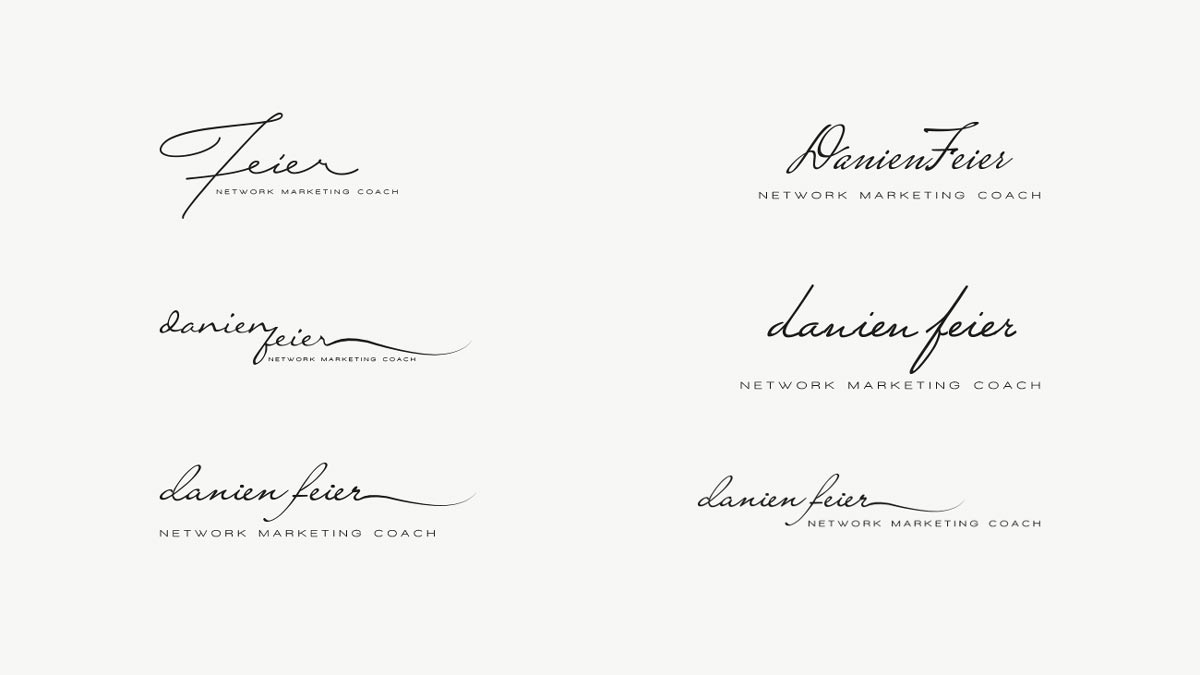 Feier
NETWORK MARKETING COACH
DanienFeier
NETWORK MARKETING COACH
danien
feier
NETWORK MARKETING COACH
danien feier
NETWORK MARKETING COACH
danien feier
NETWORK MARKETING COACH
danien feier
NETWORK MARKETING COACH